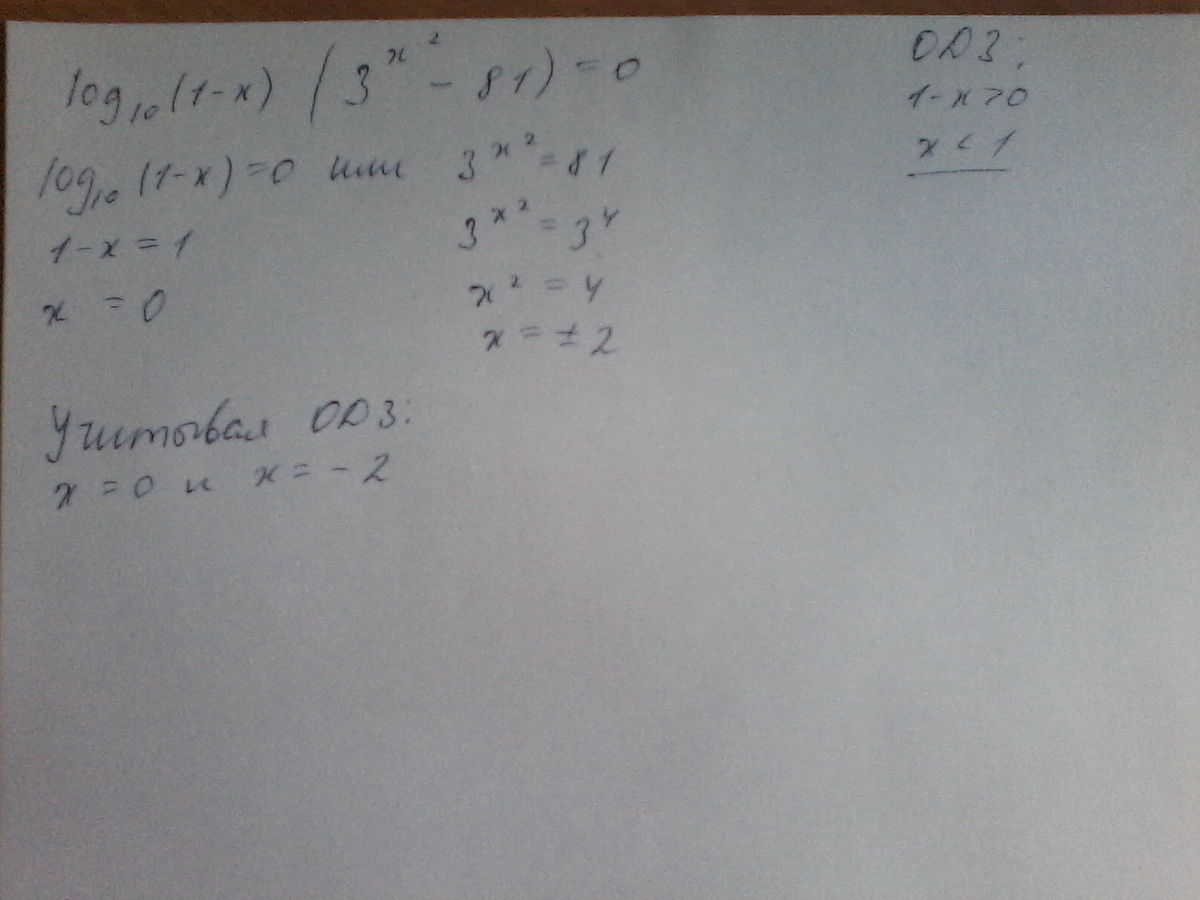 log₁₀(1-x) (3^x² - 81) = 0
ОДЗ:
1-x>0
x < 1
log₁₀(1-x)=0 или 3^x² = 81
1-x = 1
3^x² = 3⁴
x = 0
x² = 4
x = ± 2
Учитывая ОДЗ:
x = 0 и x = - 2